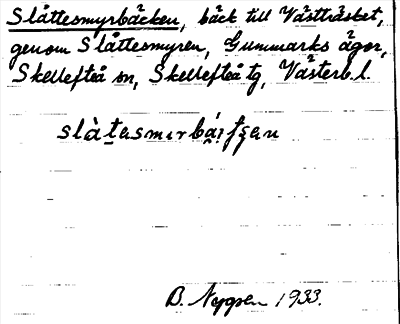 Slåttesmyrbäcken, bäck till Västträsket,
genom Slåttesmyren, Gummarks ägor,
Skellefteå sn, Skellefteå tg, Västerb. l.
B. Nygren 1933.